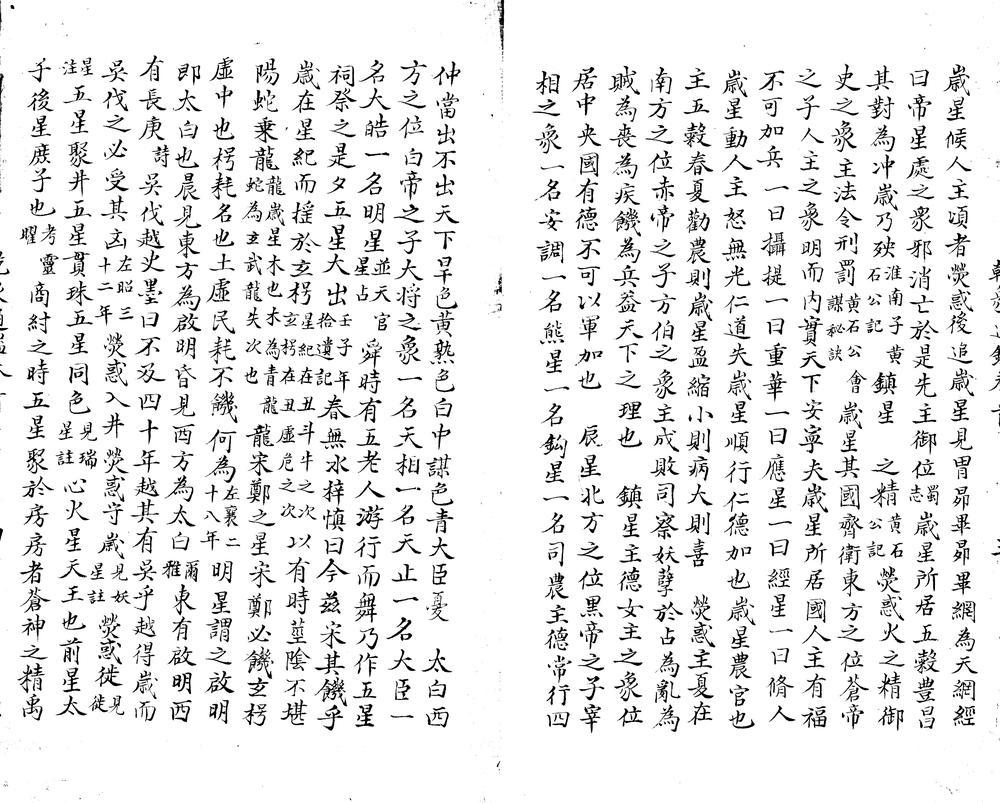 歲星候人主頃者熒惑後追歲星見胃昴畢昴畢網為天網經
曰帝星處之衆邪消亡於是先主御位蜀志歲星所居五穀豊昌
其對為冲歲乃殃淮南子黄石公記鎮星之精黄石公記熒惑火之精御
史之象主法令刑罰黄石公謀秘訣會歲星其國齊衛東方之位蒼帝
之子人主之象明而内實天下安寧夫歲星所居國人主有福
不可加兵一曰攝提一曰重華一曰應星一曰經星一曰脩人
歲星動人主怒無光仁道失歲星順行仁德加也歲星農官也
主五穀春夏勸農則歲星盈縮小則病大則喜熒惑主夏在
南方之位赤帝之子方伯之象主成敗司察妖孽於占為亂為
賊為喪為疾饑為兵益天下之理也鎮星主德女主之象位
居中央國有德不可以軍加也辰星北方之位黒帝之子宰
相之象一名安調一名熊星一名鈎星一名司農主德常行四
仲當出不出天下旱色黄熟色白中謀色青大臣憂太白西
方之位白帝之子大将之象一名天相一名天止一名大臣一
名大皓一名明星並天官星占舜時有五老人游行而舞乃作五星
祠祭之是夕五星大出壬子年拾遺記春無氷梓慎曰今兹宋其饑乎
歲在星紀而搖於玄枵星紀在丑斗牛之次玄枵在丑虛危之次以有時菑陰不堪
陽蛇乗龍龍歲星木也木為青龍蛇為玄武龍失次也龍宋鄭之星宋鄭必饑玄枵
虛中也枵耗名也土虛民耗不饑何為左襄二十八年明星謂之啟明
即太白也晨見東方為啟明昏見西方為太白爾雅東有啟明西
有長庚詩吳伐越史墨曰不及四十年越其有吳乎越得歲而
吳伐之必受其凶左昭三十二年熒惑入井熒惑守歲見妖星註熒惑徙見徙
星注五星聚井五星貫珠五星同色見瑞星註心火星天王也前星太
子後星庶子也考靈曜商紂之時五星聚於房房者蒼神之精禹